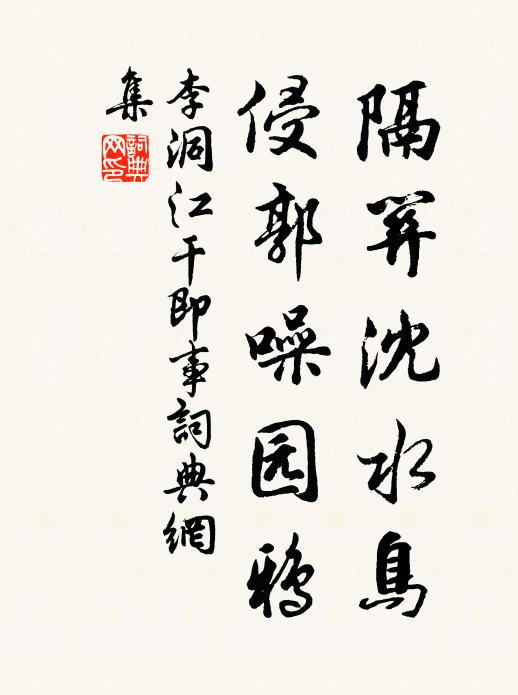 隔關沈水鳥
侵郭噪园鴉
李洞江干即事詞典網
集
詞典
网印